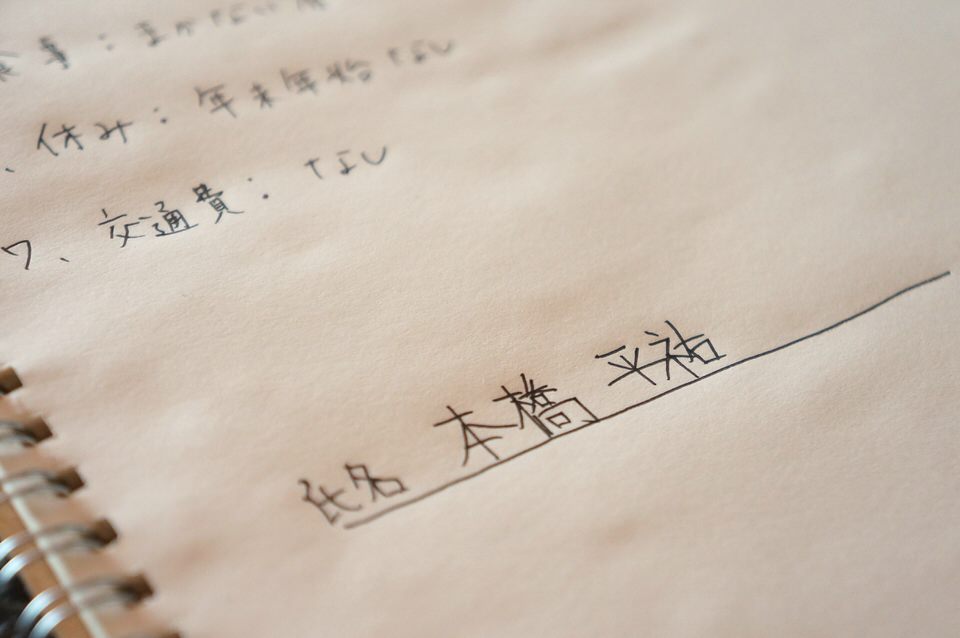 食事：まかない
、休み：年末年始なし
7、交通費：なし
氏名 本橋 平祐